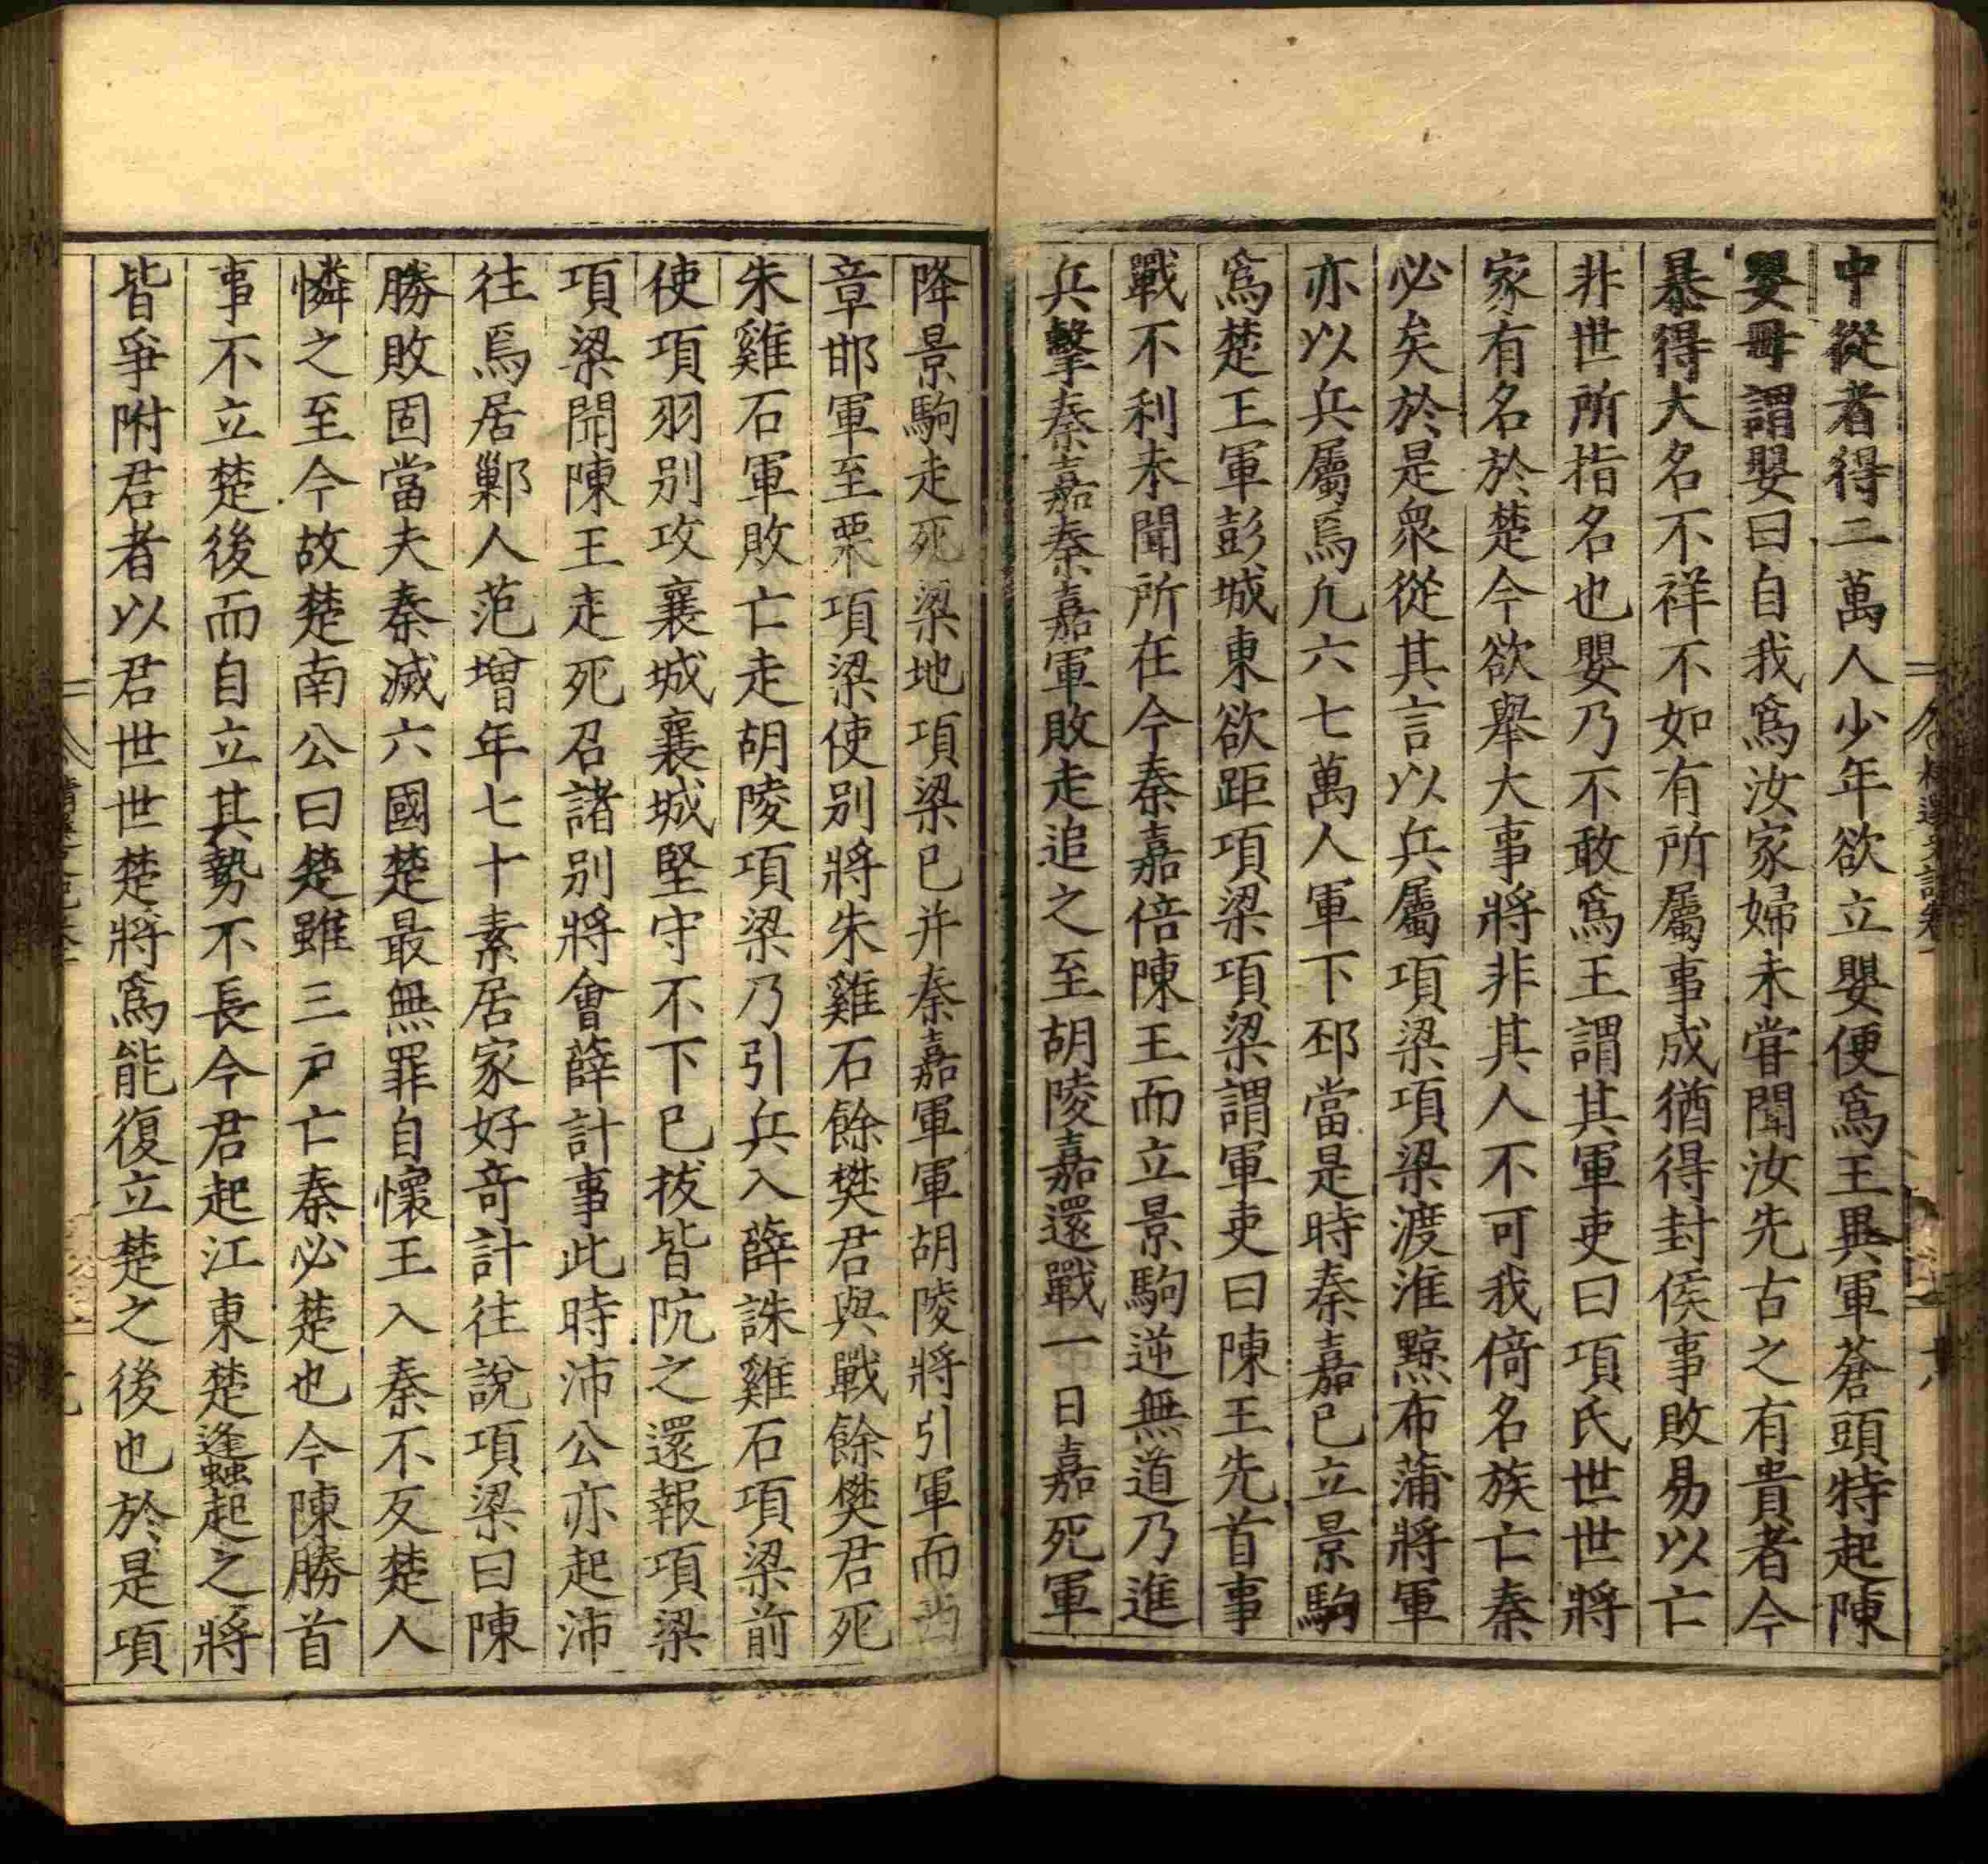 中從者得二萬人少年欲立嬰便爲王異軍蒼頭特起陳
嬰母謂嬰曰自我爲汝家婦未甞聞汝先古之有貴者今
暴得大名不祥不如有所屬事成猶得封侯事敗易以亡
非世所指名也嬰乃不敢爲王謂其軍吏曰項氏世世將
家有名於楚今欲舉大事將非其人不可我倚名族亡秦
必矣於是衆從其言以兵屬項梁項梁渡淮黥布蒲將軍
亦以兵屬焉凢六七萬人軍下邳當是時秦嘉已立景駒
爲楚王軍彭城東欲距項梁項梁謂軍吏曰陳王先首事
戰不利未聞所在今秦嘉倍陳王而立景駒逆無道乃進
兵擊秦嘉秦嘉軍敗走追之至胡陵嘉還戰一日嘉死軍
降景駒走死梁地項梁已并秦嘉軍軍胡陵將引軍而西
章邯軍至栗項梁使别將朱雞石餘樊君與戰餘樊君死
朱雞石軍敗亡走胡陵項梁乃引兵入薛誅雞石項梁前
使項羽别攻襄城襄城堅守不下已拔皆阬之還報項梁
項梁聞陳王走死召諸别將會薛計事此時沛公亦起沛
往焉居鄛人范增年七十素居家好竒計往說項梁曰陳
勝敗固當夫秦滅六國楚最無罪自懷王入秦不反楚人
憐之至今故楚南公曰楚雖三戸亡秦必楚也今陳勝首
事不立楚後而自立其勢不長今君起江東楚蠭起之將
皆爭附君者以君世世楚將爲能復立楚之後也於是項